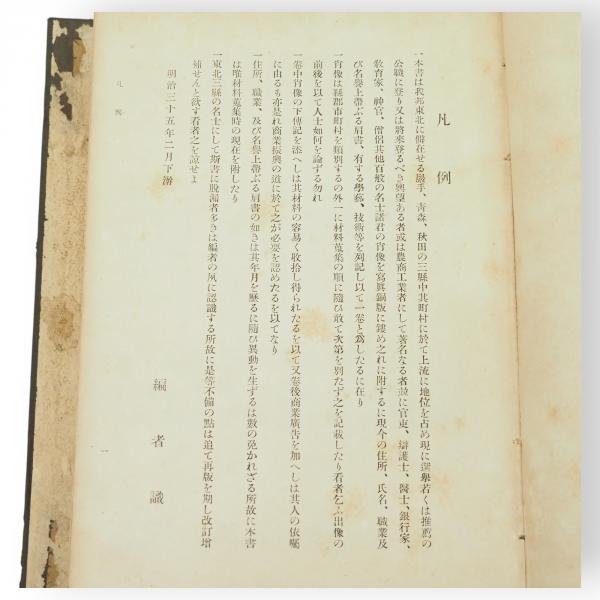 凡例
一本書は我邦東北に僻在せる巖手、靑森、秋田の三縣中其町村に於て上流に地位を占め現に選擧若くは推薦の
公職に登り又は將來登るべき輿望ある者或は農商工業者にして著名なる者並に官吏、辯護士、醫士、銀行家、
敎育家、神官、僧侶其他百般の名士諸君の肖像を寫眞銅版に鏤め之れに附するに現今の住所、氏名、職業及
び名譽上帶ぶる肩書、有する學藝、技術等を列記し以て一卷と爲したるに在り
一肖像は縣郡市町村を類別するの外一に材料蒐集の順に隨ひ敢て次第を別たず之を記載したり看者乞ふ出像の
前後を以て人士如何を論ずる勿れ
一卷中肖像の下傳記を添へしは其材料の容易く收拾し得られたるを以て又卷後商業廣吿を加へしは其人の依囑
に由るも亦是れ商業振興の道に於て之が必要を認めたるを以てなり
一住所、職業、及び名譽上帶ぶる肩書の如きは其年月を歷るに隨ひ異動を生ずるは數の免かれざる所故に本書
は唯材料蒐集時の現在を附したり
一東北三縣の名士にして斯書に脫漏者多きは編者の夙に認識する所故に是等不備の點は追て再版を期し改訂增
補せんと欲す看者之を諒せよ
明治三十五年二月下澣
編者識
凡例
一